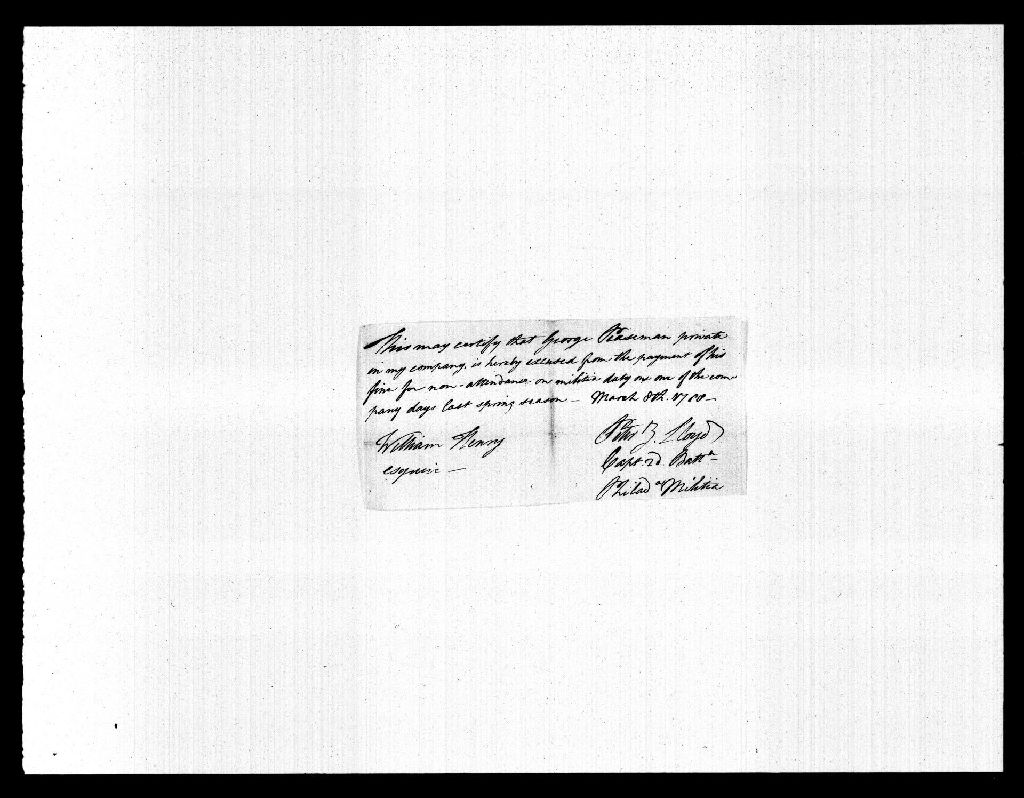 This may certify that George Peaseman private
in my company, is hereby excused from the payment of his
fine for non-attendance on militia duty on one of the com-
pany days last spring season — March 8th. 1788 —
William Henry
esquire —
Peter Z. Lloyd
Capt. 2d. Battn
Philada Militia